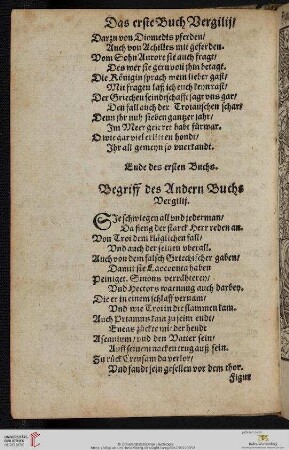 Das erste Buch Vergilij/
Darzu von Diomedis pferden/
Auch von Achilles mit geferden.
Vom Sohn Aurore sie auch fragt/
Des wer sie gern von ihm betagt.
Die Königin sprach mein lieber gast/
Mit fragen laß ich euch kein rast/
Der Griechen feindtschafft jag uns gar/
Den fall auch der Troianschen schar/
Denn ihr nuh sieben gantzer jahr/
Im Meer geirret habt fürwar.
O wie gar viel erlitten hondt/
Ihr all gemeyn jo unerkandt.
Ende des ersten Buchs.
Begriff des Andern Buchs
Vergilij.
SJe schwiegen all vnd jederman/
Da fieng der starck Herr reden an.
Von Troi dem kläglichen fall/
Vnd auch der seinen vberall.
Auch von dem falsch Griechischer gaben/
Damit sie Laocontea haben
Peiniget. Sinons verrähterey/
Vnd Hectors warnung auch darbey.
Die er in einem schlaff vernam/
Vnd wie Troi in die flammen kam.
Auch Priamus kam zu seim endt/
Eneas zückte mit der hendt
Ascanium/ vnd den Vatter sein/
Auff seinem nacken trug auß fein.
Zu rück Creusam da verlor/
Vnd fandt sein gesellen vor dem thor.
Figur